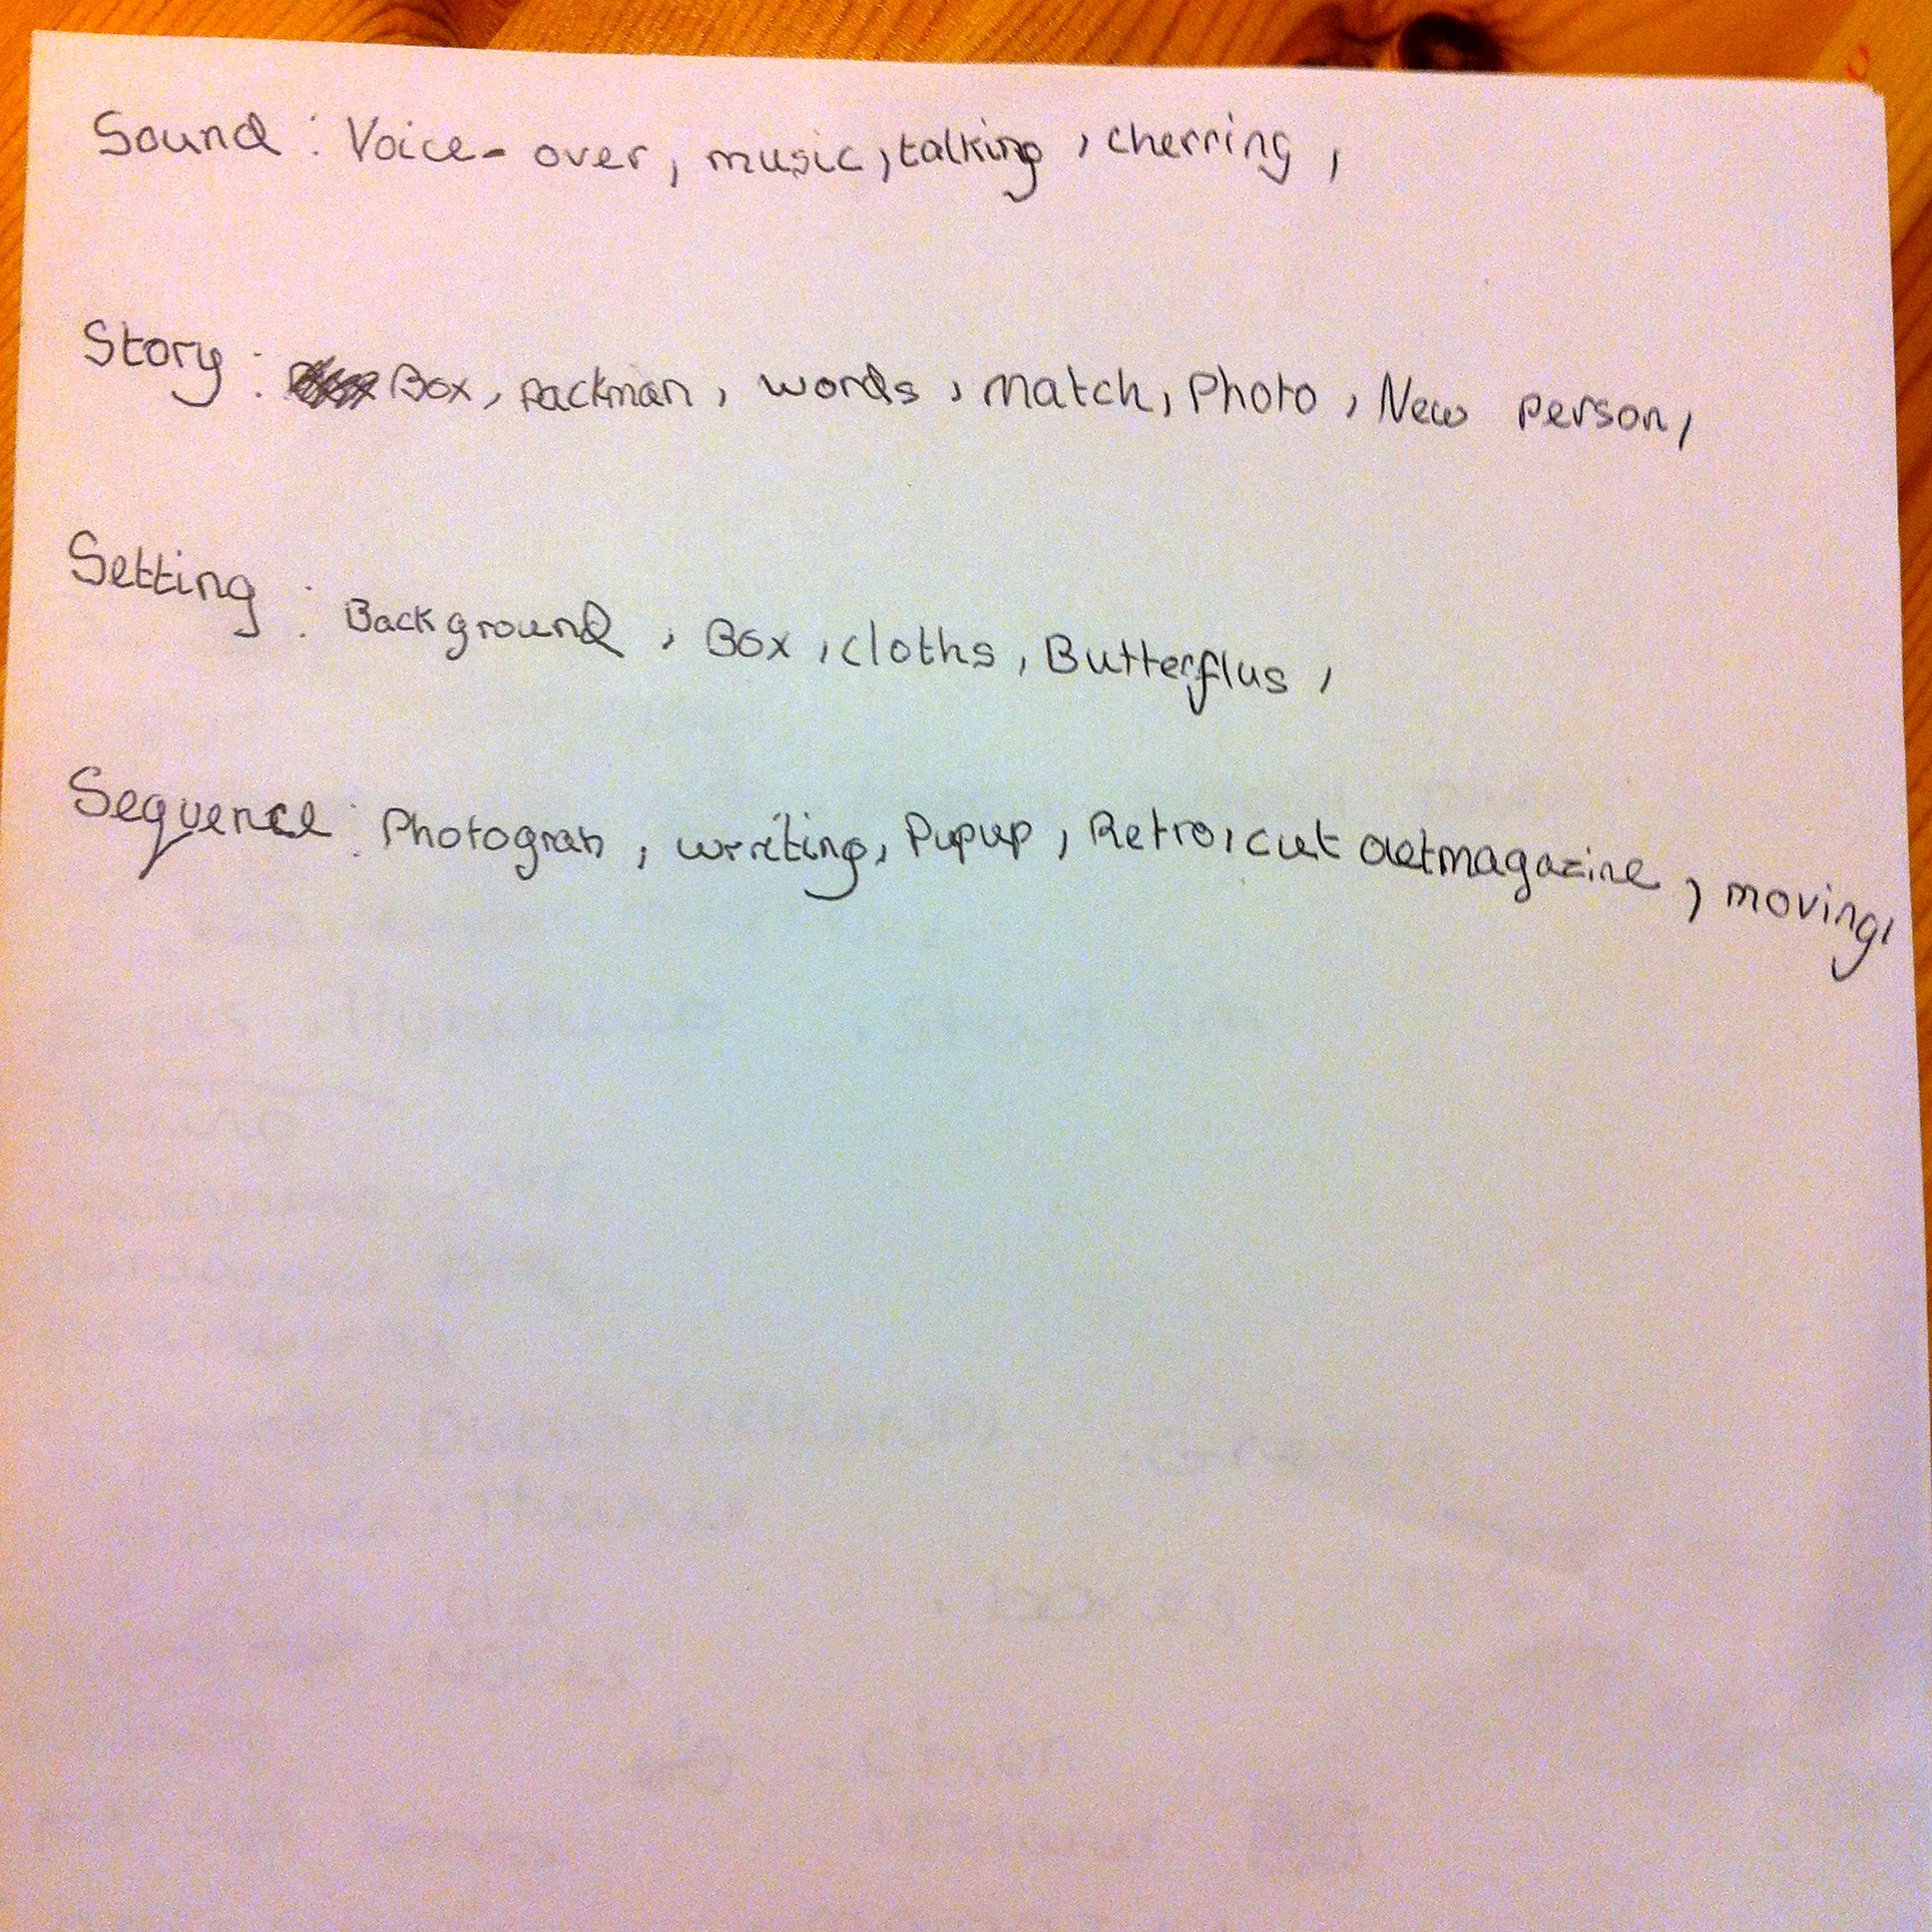 Sound : Voice-over, music, talking, cherring,
Story : Box, Packman, words, match, Photo, New person,
Setting : Background, Box, cloths, Butterflus,
Sequence : Photograh, writing, Pupup, Retro, cut outmagazine, moving,